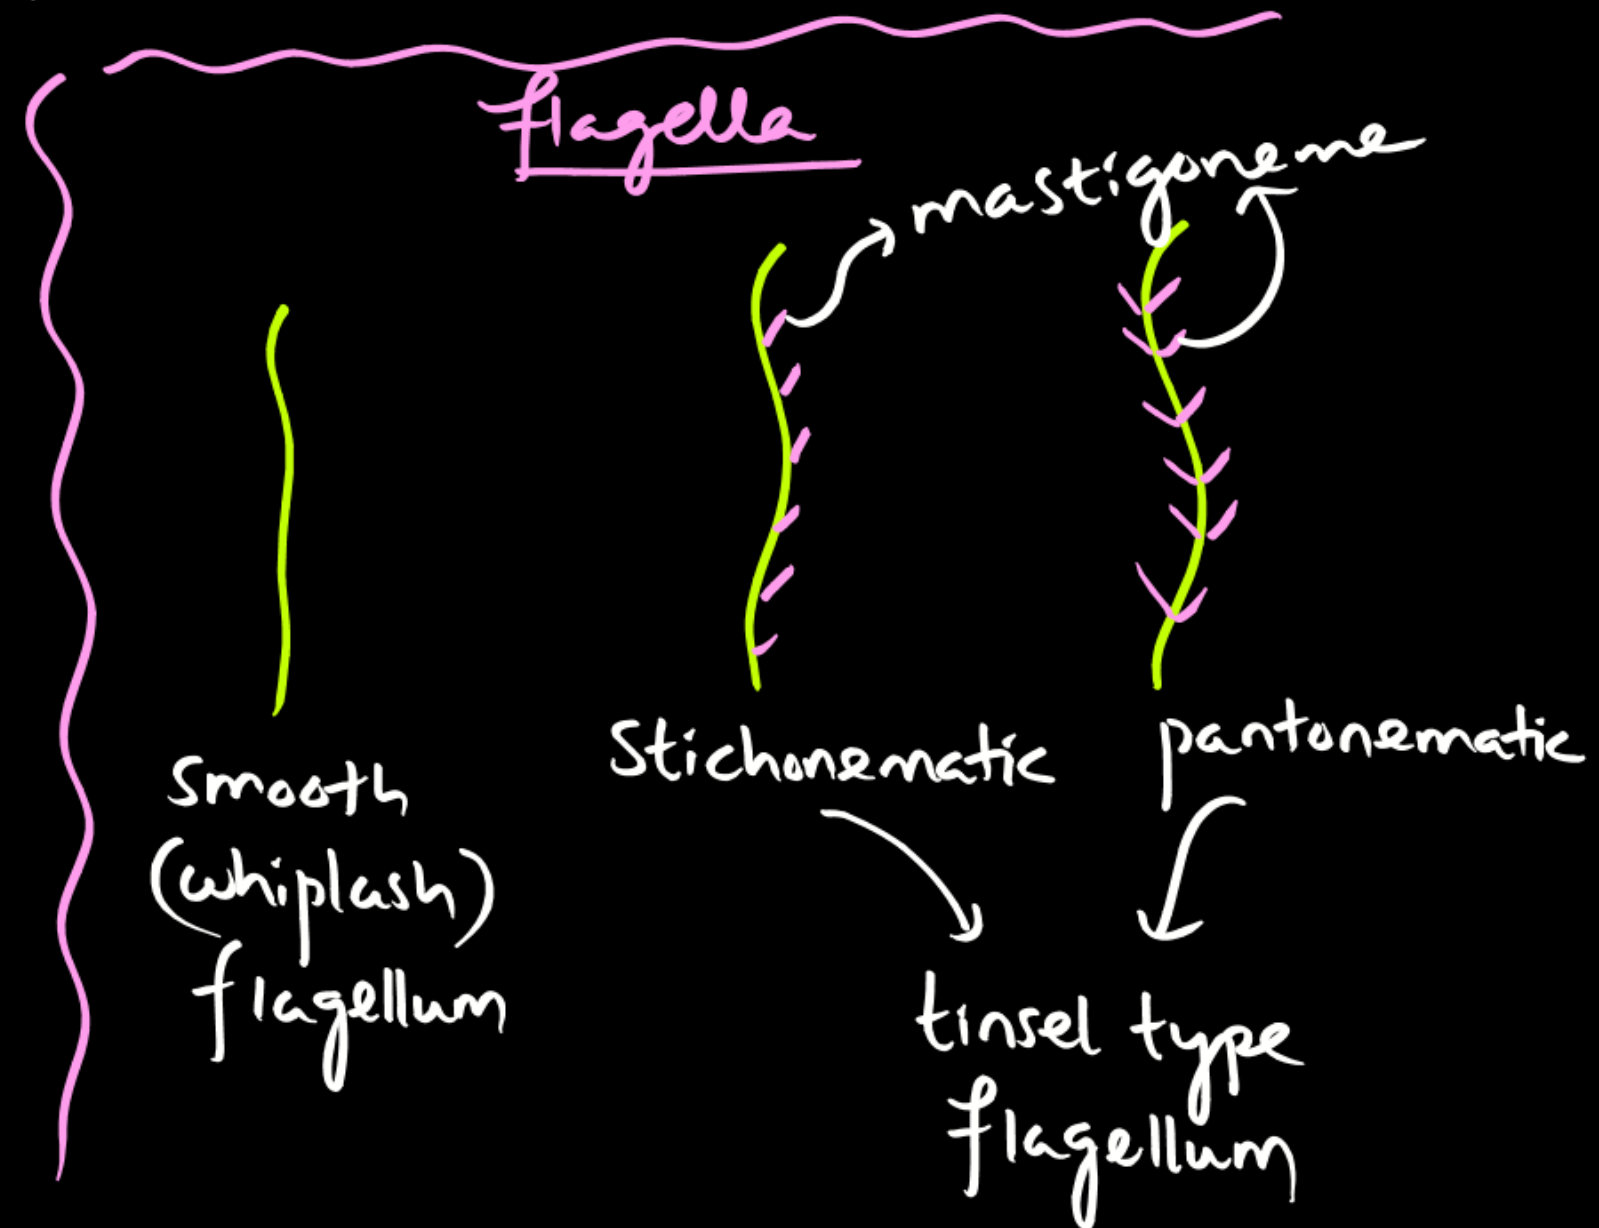 flagella
mastigoneme
Smooth
(whiplash)
flagellum
Stichonematic
pantonematic
tinsel type
flagellum